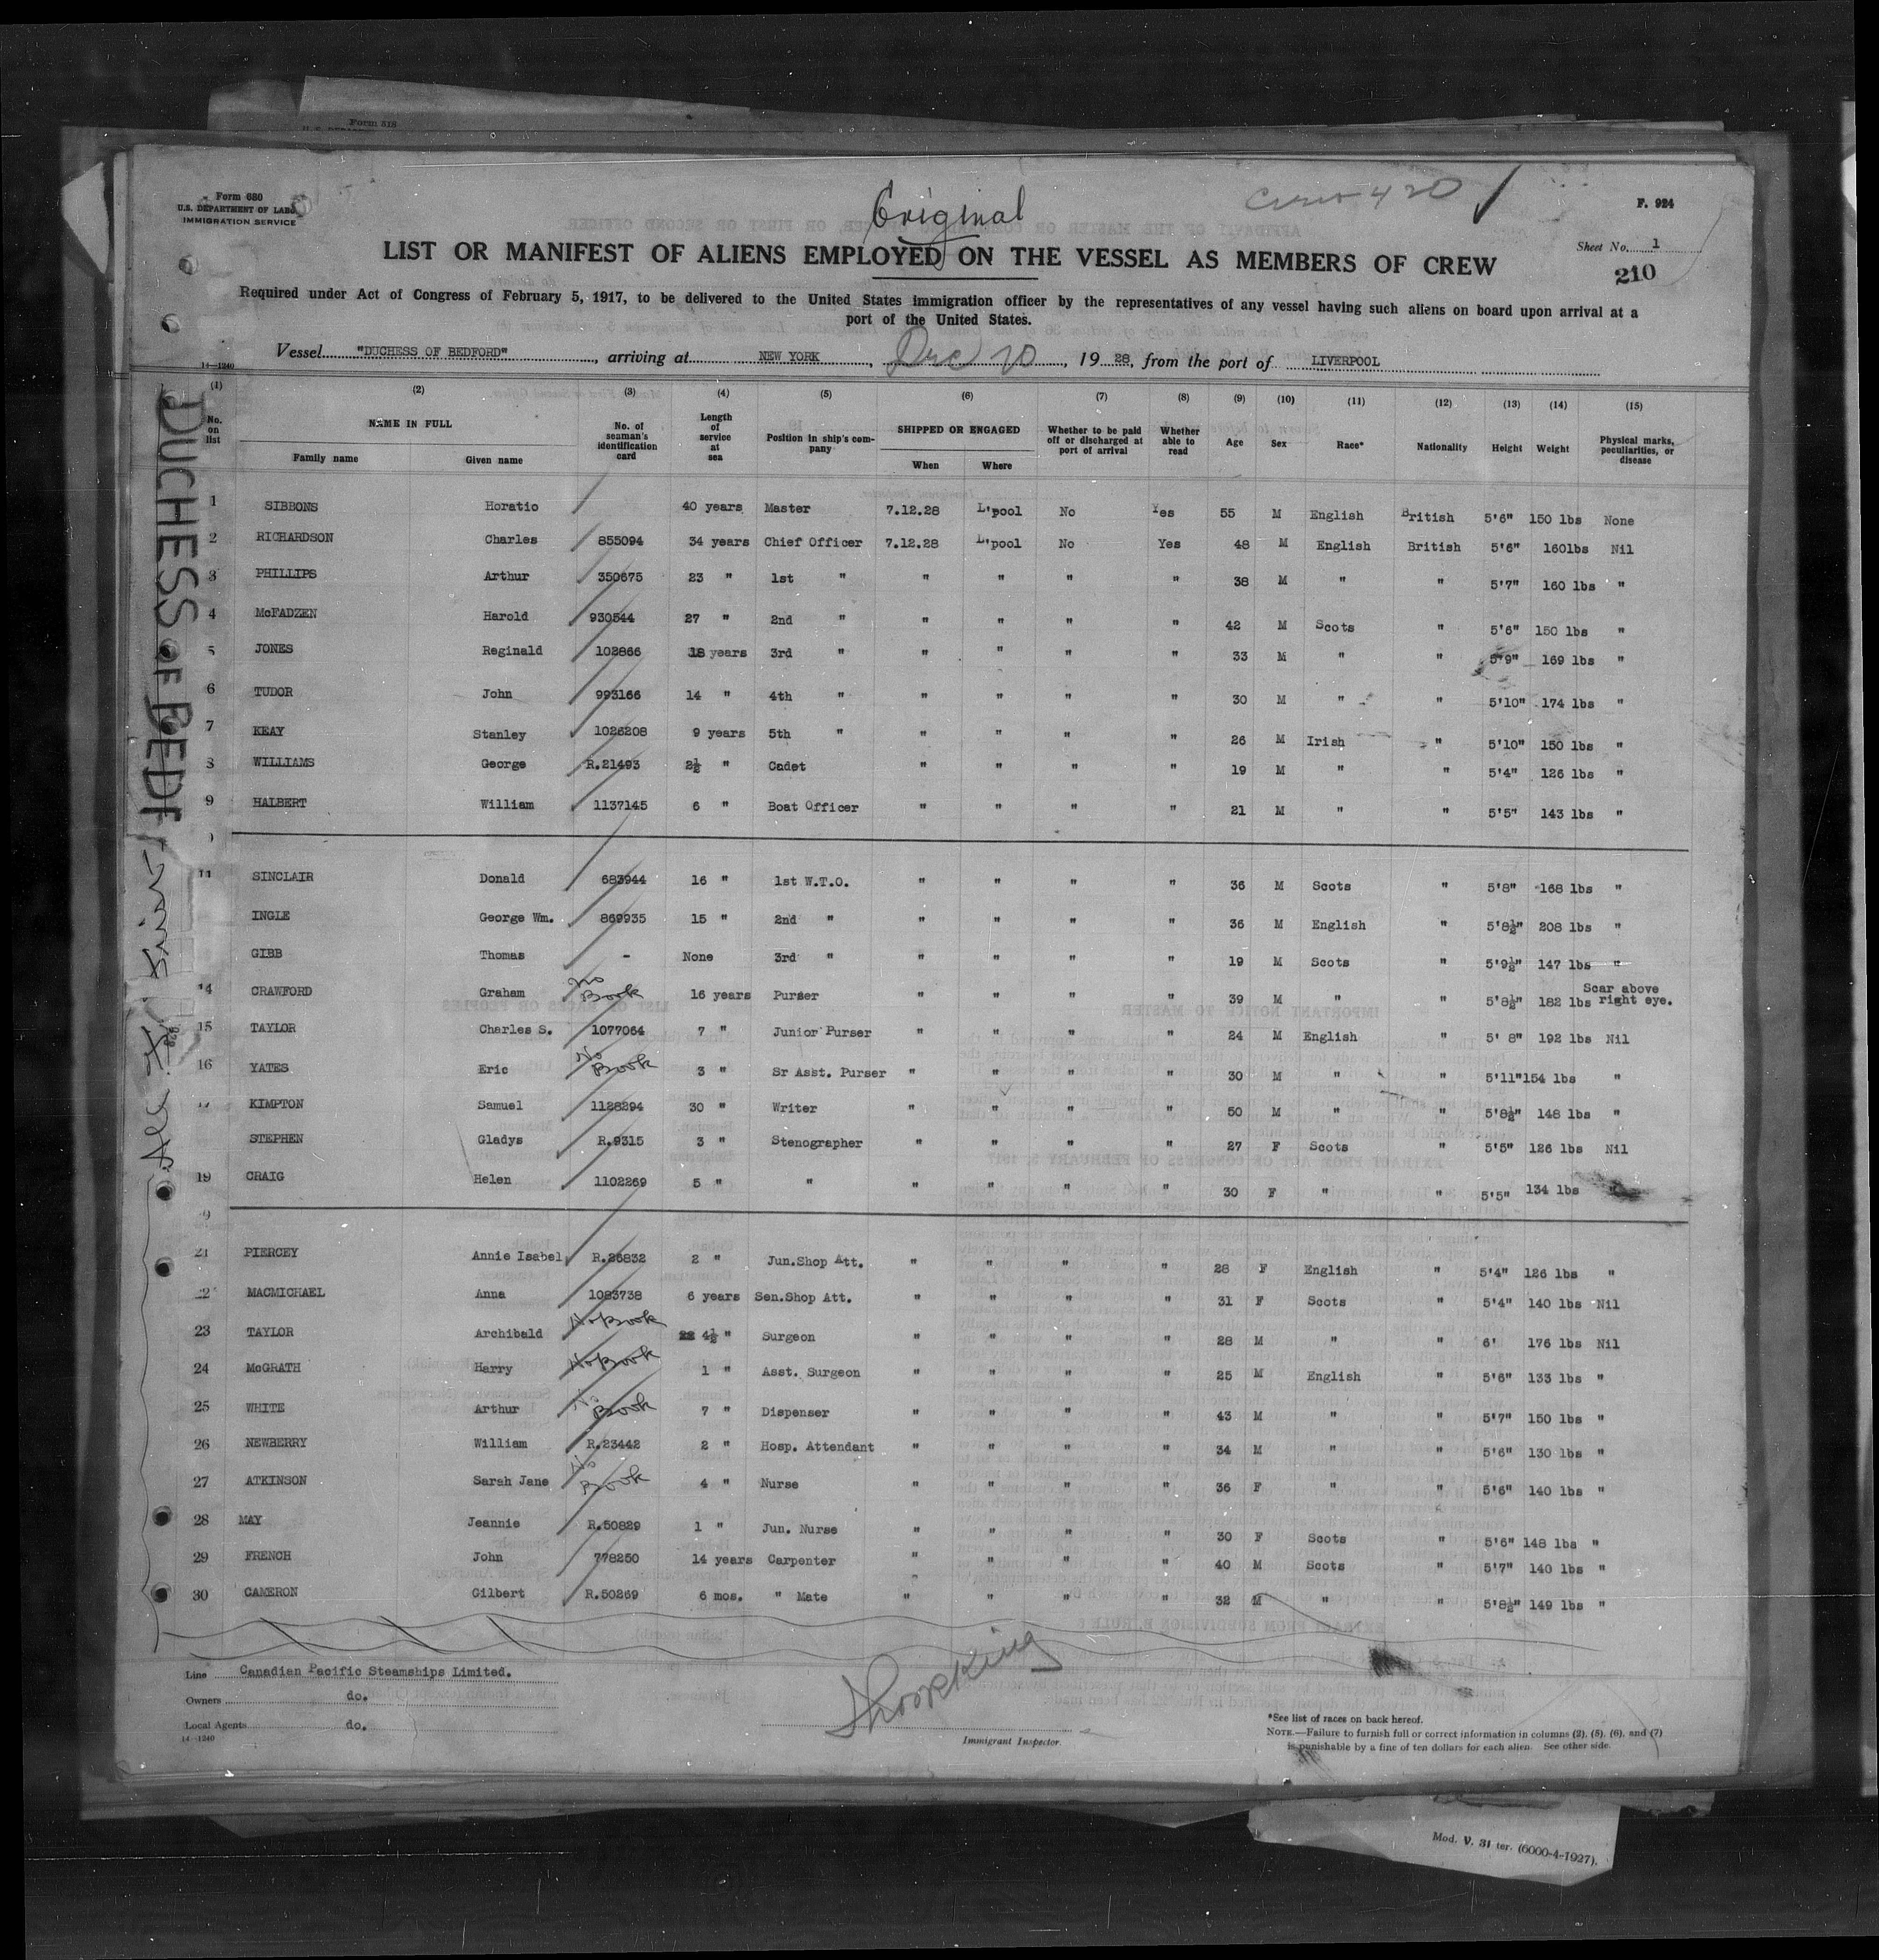 Form 518
Original
Crew 420
Form 680
U.S. DEPARTMENT OF LABOR
IMMIGRATION SERVICE
F. 924
Sheet No. 1
210
LIST OR MANIFEST OF ALIENS EMPLOYED ON THE VESSEL AS MEMBERS OF CREW
Required under Act of Congress of February 5, 1917, to be delivered to the United States immigration officer by the representatives of any vessel having such aliens on board upon arrival at a
port of the United States.
Vessel "DUCHESS OF BEDFORD", arriving at NEW YORK, Dec 10, 19 28, from the port of LIVERPOOL
14—1240
(1) (2) (3) (4) (5) (6) (7) (8) (9) (10) (11) (12) (13) (14) (15)
No. on list NAME IN FULL Family name Given name No. of seaman's identification card Length of service at sea Position in ship's company SHIPPED OR ENGAGED When Where Whether to be paid off or discharged at port of arrival Whether able to read Age Sex Race* Nationality Height Weight Physical marks, peculiarities, or disease
1 SIBBONS Horatio 40 years Master 7.12.28 L'pool No Yes 55 M English British 5'6" 150 lbs None
2 RICHARDSON Charles 855094 34 years Chief Officer 7.12.28 L'pool No Yes 48 M English British 5'6" 160lbs Nil
3 PHILLIPS Arthur 350675 23 " 1st " " " " " 38 M " " 5'7" 160 lbs "
4 McFADZEN Harold 930544 27 " 2nd " " " " " 42 M Scots " 5'6" 150 lbs "
5 JONES Reginald 102866 18 years 3rd " " " " " 33 M " " 5'9" 169 lbs "
6 TUDOR John 993166 14 " 4th " " " " " 30 M " " 5'10" 174 lbs "
7 KEAY Stanley 1026208 9 years 5th " " " " " 26 M Irish " 5'10" 150 lbs "
8 WILLIAMS George R.21493 2½ " Cadet " " " " 19 M " " 5'4" 126 lbs "
9 HALBERT William 1137145 6 " Boat Officer " " " " 21 M " " 5'5" 143 lbs "
11 SINCLAIR Donald 683944 16 " 1st W.T.O. " " " " 36 M Scots " 5'8" 168 lbs "
INGLE George Wm. 869935 15 " 2nd " " " " " 36 M English " 5'8½" 208 lbs "
GIBB Thomas - None 3rd " " " " " 19 M Scots " 5'9½" 147 lbs "
14 CRAWFORD Graham No Book 16 years Purser " " " " 39 M " " 5'8½" 182 lbs Scar above right eye.
15 TAYLOR Charles S. 1077064 7 " Junior Purser " " " " 24 M English " 5' 8" 192 lbs Nil
16 YATES Eric No Book 3 " Sr Asst. Purser " " " " 30 M " " 5'11" 154 lbs "
17 KIMPTON Samuel 1128294 30 " Writer " " " " 50 M " " 5'8½" 148 lbs "
STEPHEN Gladys R.9315 3 " Stenographer " " " " 27 F Scots " 5'5" 126 lbs Nil
19 CRAIG Helen 1102269 5 " " " " " " 30 F " " 5'5" 134 lbs "
21 PIERCEY Annie Isabel R.26832 2 " Jun.Shop Att. " " " " 28 F English " 5'4" 126 lbs "
22 MACMICHAEL Anna 1083738 6 years Sen.Shop Att. " " " " 31 F Scots " 5'4" 140 lbs Nil
23 TAYLOR Archibald No Book 4½ " Surgeon " " " " 28 M " " 6' 176 lbs Nil
24 McGRATH Harry No Book 1 " Asst. Surgeon " " " " 25 M English " 5'6" 133 lbs "
25 WHITE Arthur No Book 7 " Dispenser " " " " 43 M " " 5'7" 150 lbs "
26 NEWBERRY William R.23442 2 " Hosp. Attendant " " " " 34 M " " 5'6" 130 lbs "
27 ATKINSON Sarah Jane No Book 4 " Nurse " " " " 36 F " " 5'6" 140 lbs "
28 MAY Jeannie R.50829 1 " Jun. Nurse " " " " 30 F Scots " 5'6" 148 lbs "
29 FRENCH John 778250 14 years Carpenter " " " " 40 M Scots " 5'7" 140 lbs "
30 CAMERON Gilbert R.50269 6 mos. " Mate " " " " 32 M " " 5'8½" 149 lbs "
DUCHESS OF BEDF
Line Canadian Pacific Steamships Limited.
Owners do.
Local Agents do.
14—1240
Immigrant Inspector.
*See list of races on back hereof.
NOTE.—Failure to furnish full or correct information in columns (2), (5), (6), and (7)
is punishable by a fine of ten dollars for each alien. See other side.
Mod. V. 31 ter. (6000-4-1927).